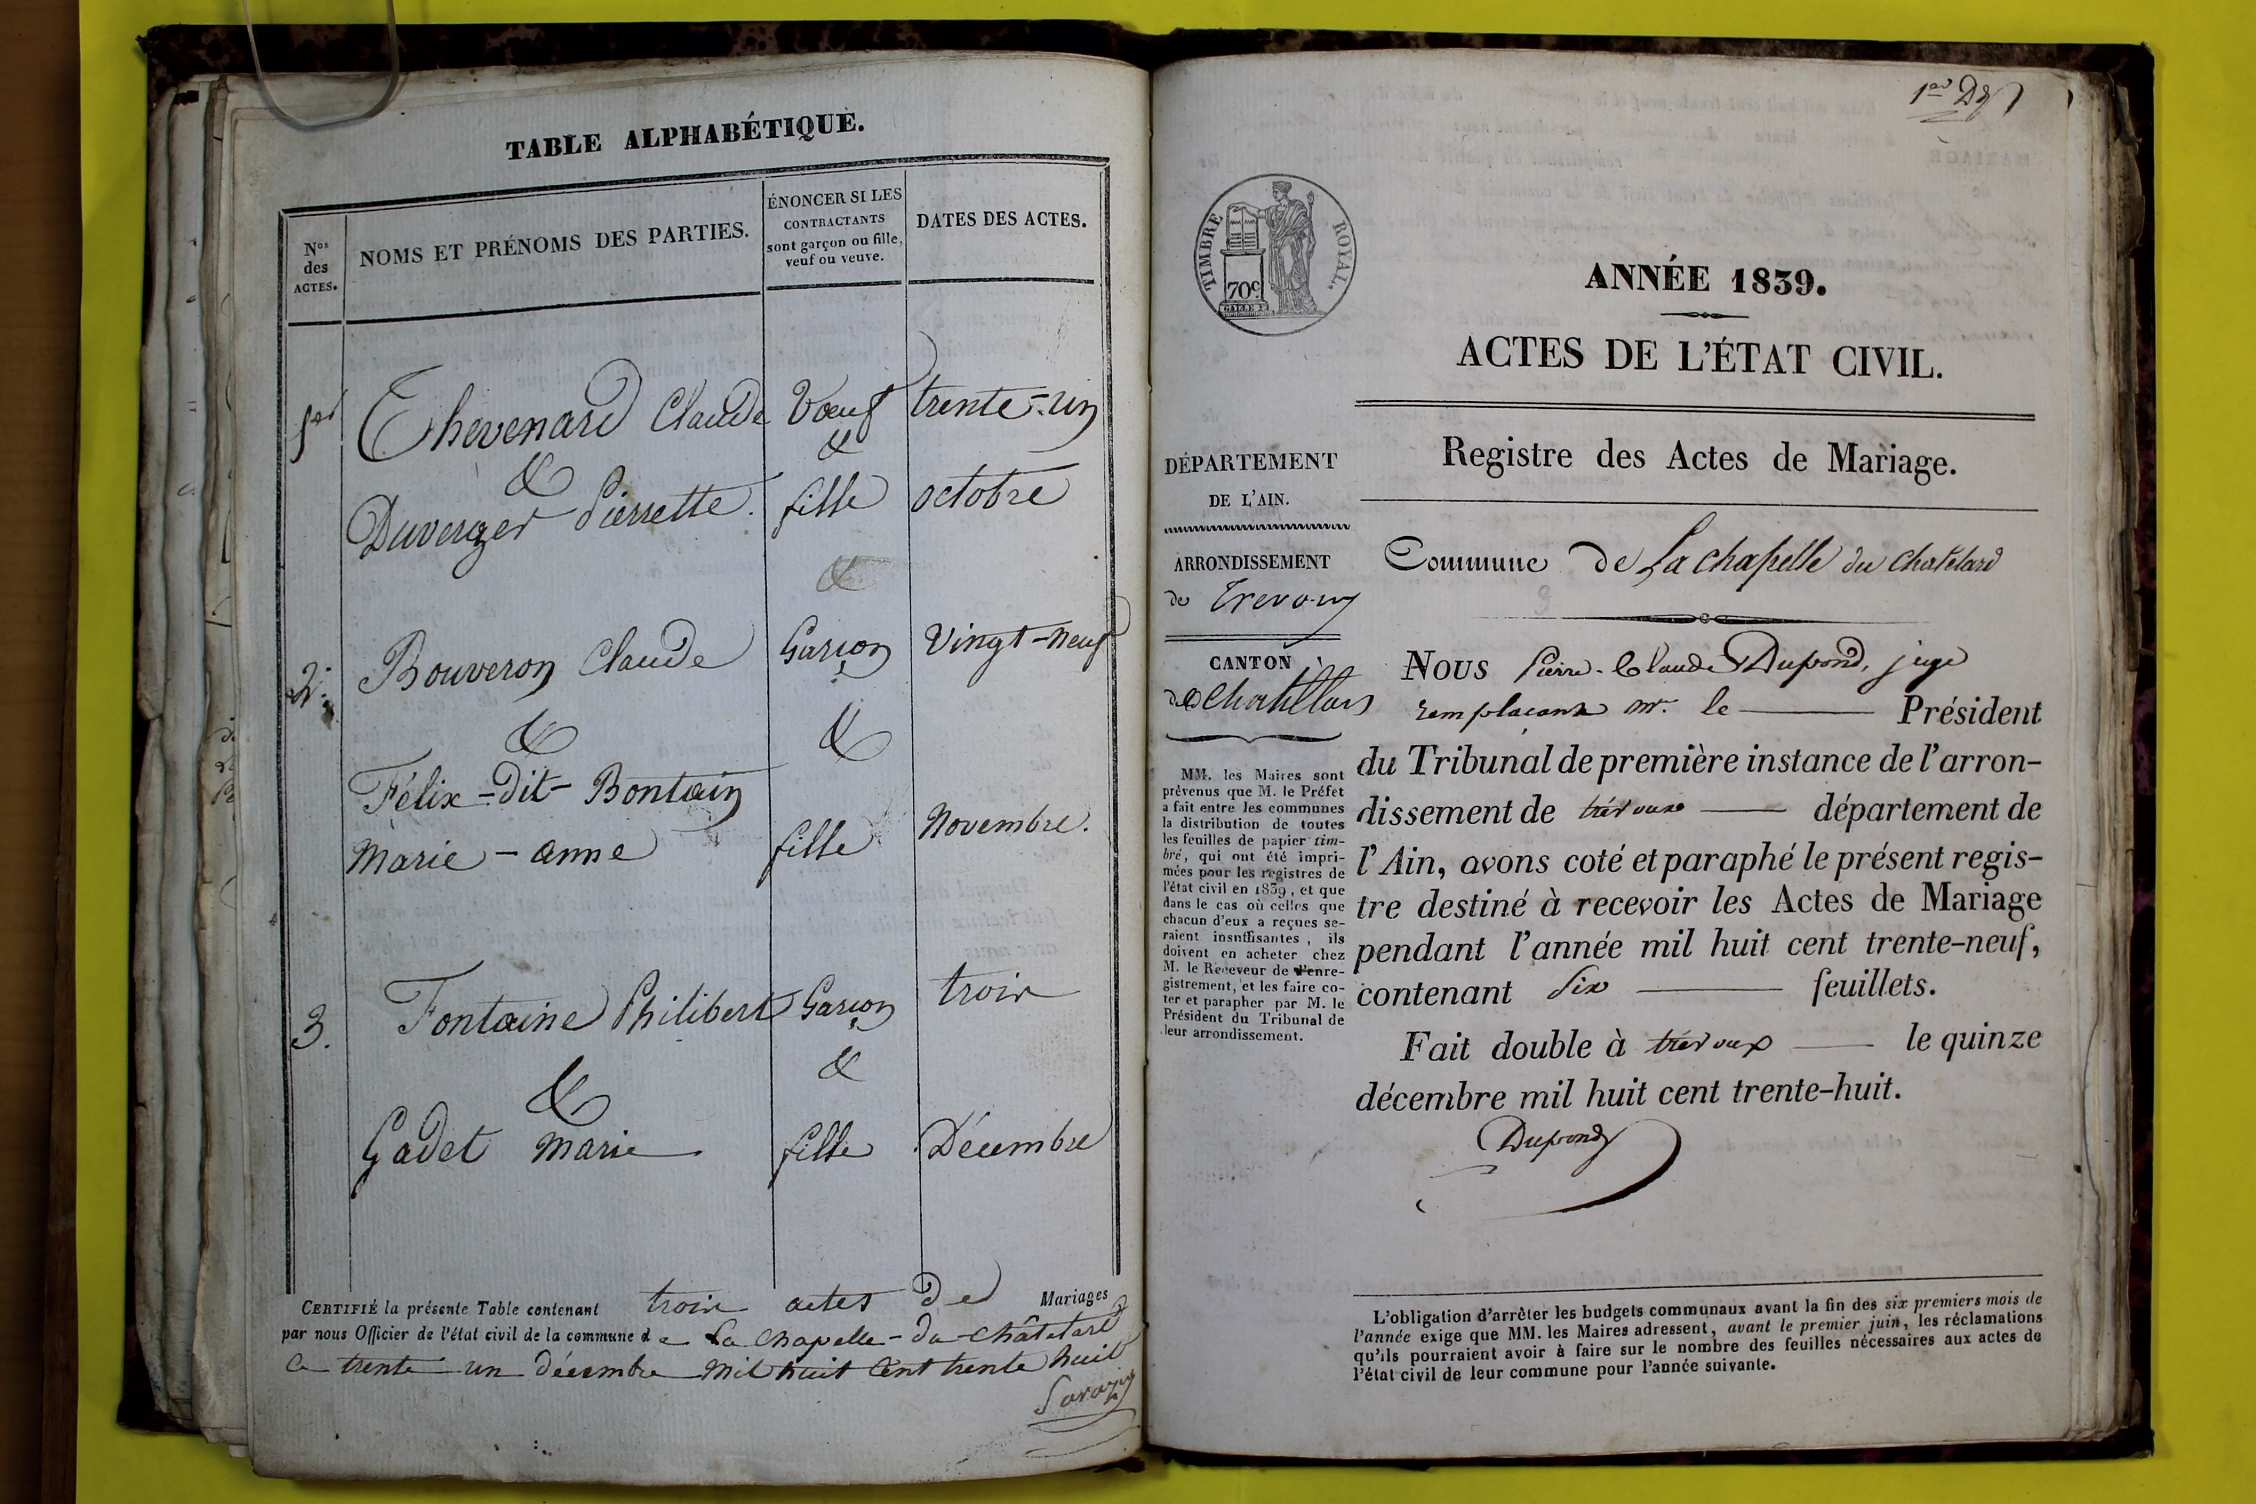 TABLE ALPHABÉTIQUE.
Nos des ACTES.
NOMS ET PRÉNOMS DES PARTIES.
ÉNONCER SI LES
CONTRACTANTS
sont garçon ou fille,
veuf ou veuve.
DATES DES ACTES.
1er Thevenard Claude Vœuf trente-un
& &
Duverger Pierrette. fille octobre
&
2. Bouveron Claude Garçon Vingt-neuf
& &
Félix-dit-Bontain
Marie-anne fille Novembre.
3. Fontaine Philibert Garçon trois
& &
Gadet Marie fille Décembre
CERTIFIÉ la présente Table contenant trois actes de Mariages
par nous Officier de l'état civil de la commune de La Chapelle-du-Châtelard
ce trente un décembre mil huit cent trente huit
1er
TIMBRE ROYAL.
70c
ANNÉE 1839.
ACTES DE L'ÉTAT CIVIL.
Registre des Actes de Mariage.
DÉPARTEMENT
DE L'AIN.
ARRONDISSEMENT
de Trevoux
CANTON
de Chatillon
MM. les Maires sont
prévenus que M. le Préfet
a fait entre les communes
la distribution de toutes
les feuilles de papier tim-
bré, qui ont été impri-
mées pour les registres de
l'état civil en 1839, et que
dans le cas où celles que
chacun d'eux a reçues se-
raient insuffisantes, ils
doivent en acheter chez
M. le Receveur de l'enre-
gistrement, et les faire co-
ter et parapher par M. le
Président du Tribunal de
leur arrondissement.
Commune de La chapelle du chatelard
NOUS Pierre-Claude Dupond, juge
remplaçant mr. le Président
du Tribunal de première instance de l'arron-
dissement de trévoux département de
l'Ain, avons coté et paraphé le présent regis-
tre destiné à recevoir les Actes de Mariage
pendant l'année mil huit cent trente-neuf,
contenant Six feuillets.
Fait double à trévoux le quinze
décembre mil huit cent trente-huit.
Dupond
L'obligation d'arrêter les budgets communaux avant la fin des six premiers mois de
l'année exige que MM. les Maires adressent, avant le premier juin, les réclamations
qu'ils pourraient avoir à faire sur le nombre des feuilles nécessaires aux actes de
l'état civil de leur commune pour l'année suivante.